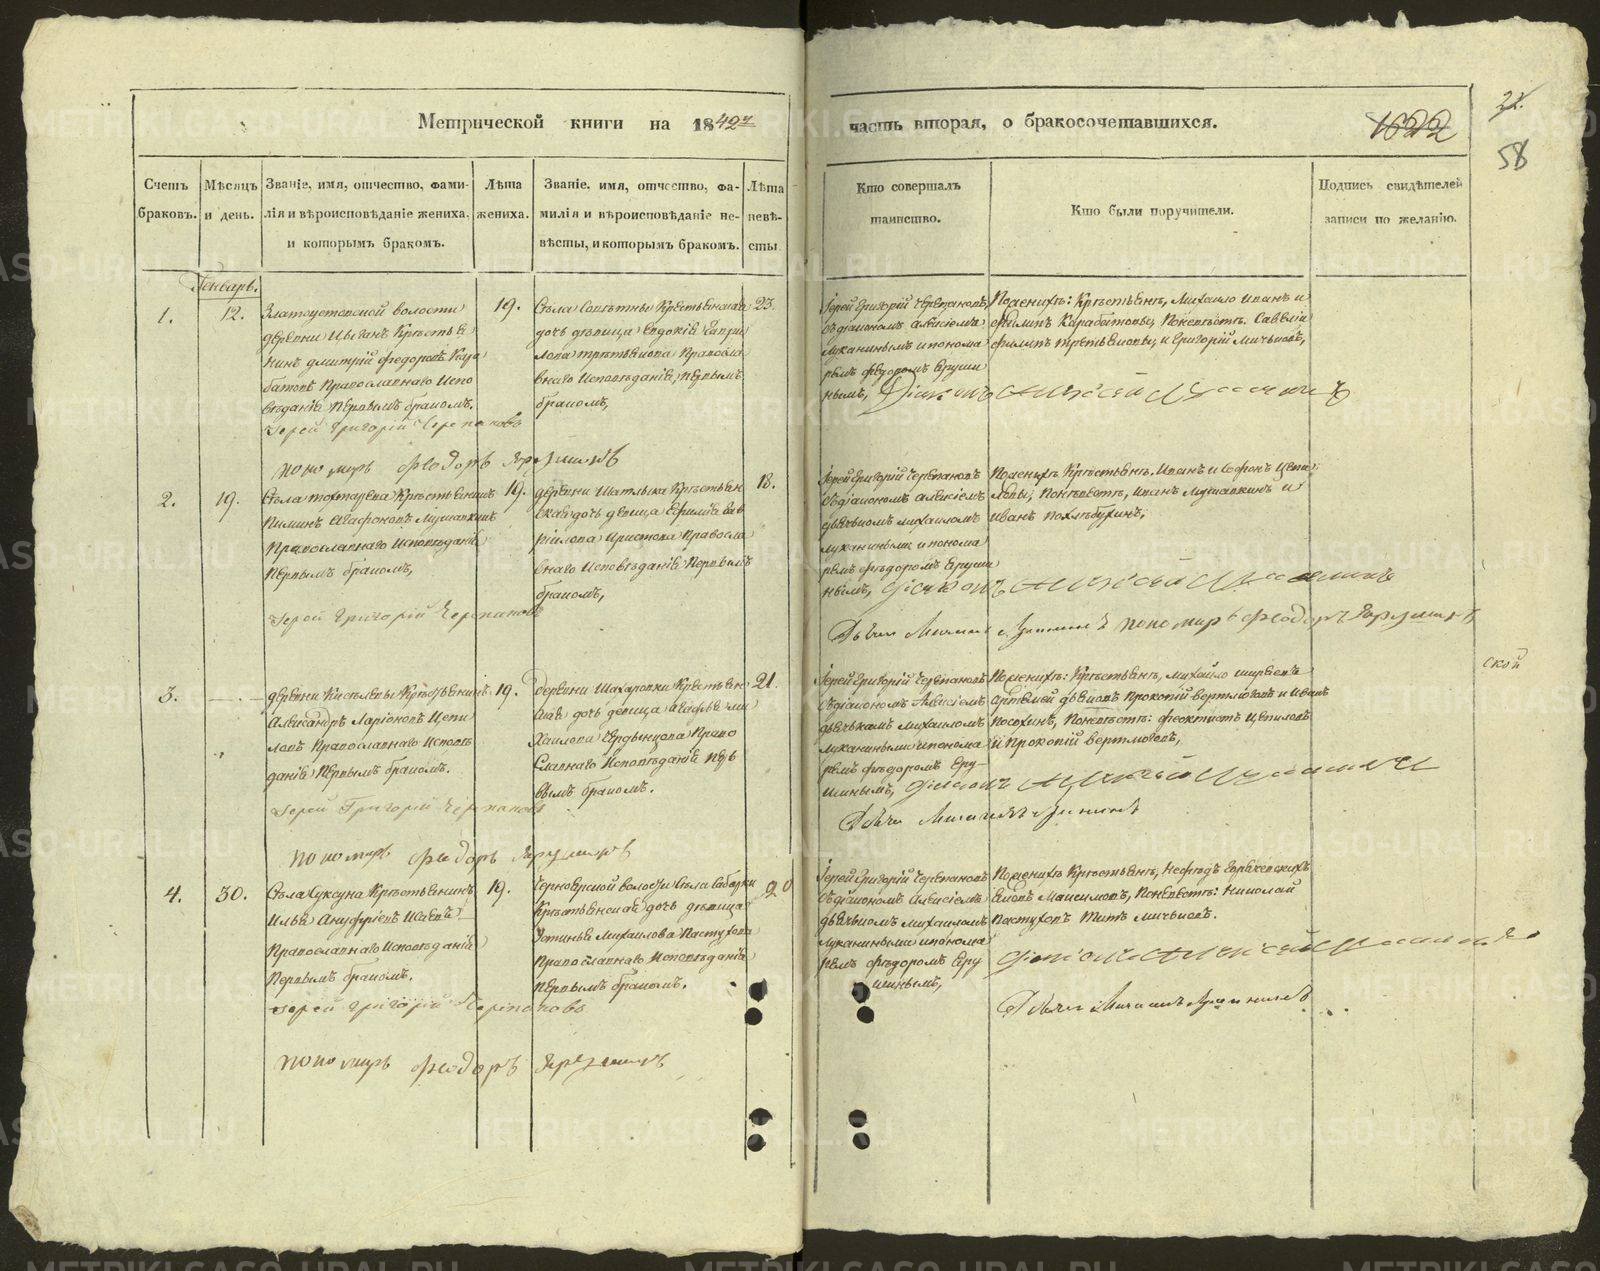 Метрической книги на 1842й
часть вторая, о бракосочетавшихся.
1622
58
Счетъ браковъ.
Мѣсяцъ и день.
Званіе, имя, отчество, фами-
лія и вѣроисповѣданіе жениха,
и которымъ бракомъ.
Лѣта
жениха.
Званіе, имя, отчество, фа-
милія и вѣроисповѣданіе не-
вѣсты, и которымъ бракомъ.
Лѣта
невѣ-
сты
Кто совершалъ
таинство.
Кто были поручители.
Подпись свидѣтелей
записи по желанію.
Генварь.
1.
12.
Златоустовской волости
деревни Цыганъ Крестьѣ
нинъ Дмитрій Федоровъ Кара
батовъ Православнаго Испо
вѣданія первымъ бракомъ.
Іерей Григорій Черепановъ
19.
дочь дѣвица Евдокія Гаври
лова третьякова Правосла
внаго Исповѣданія, первымъ
бракомъ,
23.
Іерей Григорій Черепановъ,
съ діакономъ Алексіемъ
Луканинымъ и понома
ремъ Федоромъ Еруши
нымъ,
По женихѣ: Крестьянѣ, Михайло Иванъ и
Филипъ Карабатовы, По невѣстѣ. Савелій
Филипъ Третьяковы, и Григорій Мичковъ,
Діаконъ Алексій Луканинъ
пономарь Феодоръ Ярушинъ
2.
19.
Православнаго Исповѣданія
первымъ бракомъ,
Іерей Григорій Черепановъ
19.
деревни Шатлыка Крестьян
ская дочь дѣвица Ефимія Гав
рілова Христова Правосла
внаго Исповѣданія первымъ
бракомъ,
18.
Іерей Григорій Черепановъ
съ діакономъ Алексіемъ
дьячкомъ Михаиломъ
Луканиными и понома
ремъ Федоромъ Еруши
нымъ,
По женихѣ Крестьянѣ, Иванъ и Софонъ Цепи
ловы, По невѣстѣ, Иванъ Мушапкинъ и
Иванъ Похлѣбухинъ,
Діаконъ Алексій Луканинъ
Дьячекъ Михаилъ Луканинъ пономарь Феодоръ Ярушинъ
3.
деревни Киселевы Крестьянинъ
Александръ Ларіоновъ Цепи
ловъ Православнаго Исповѣ
данія первымъ бракомъ.
Іерей Григорій Черепановъ
19.
деревни Шахаровки Крестьян
ская дочь дѣвица Агафья Ми
хайлова Чердынцова Право
славнаго Исповѣданія пер
вымъ бракомъ.
21.
Іерей Григорій Черепановъ
съ діакономъ Алексіемъ
дьячкомъ Михаиломъ
Луканиными и понома
ремъ Федоромъ Еру
шинымъ,
По женихѣ: Крестьянѣ, Михайло Ширяевъ
Артемей Дьяковъ Прокопій Вертлюговъ и Иванъ
Посохинъ, По невѣстѣ: Феоктистъ Цепиловъ
и Прокопій Вертлюговъ,
Діаконъ Алексій Луканинъ
Дьячекъ Михаилъ Луканинъ
ской
пономарь Феодоръ Ярушинъ
4.
30.
Села Суксуна Крестьянинъ
Илья Ануфріевъ Шляпинъ
Православнаго Исповѣданія
первымъ бракомъ.
Іерей Григорій Черепановъ
19.
Черноярской волости Села Сабарки
Крестьянская дочь дѣвица
Устинья Михайлова Пастухова
Православнаго Исповѣданія
первымъ бракомъ.
20
Іерей Григорій Черепановъ
съ діакономъ Алексіемъ
дьячкомъ Михаиломъ
Луканиными и понома
ремъ Федоромъ Еру
шинымъ,
Пастуховъ Титъ Мичковъ.
Діаконъ Алексій Луканинъ
Дьячекъ Михаилъ Луканинъ
пономарь Феодоръ Ярушинъ
METRIKI.GASO-URAL.RU